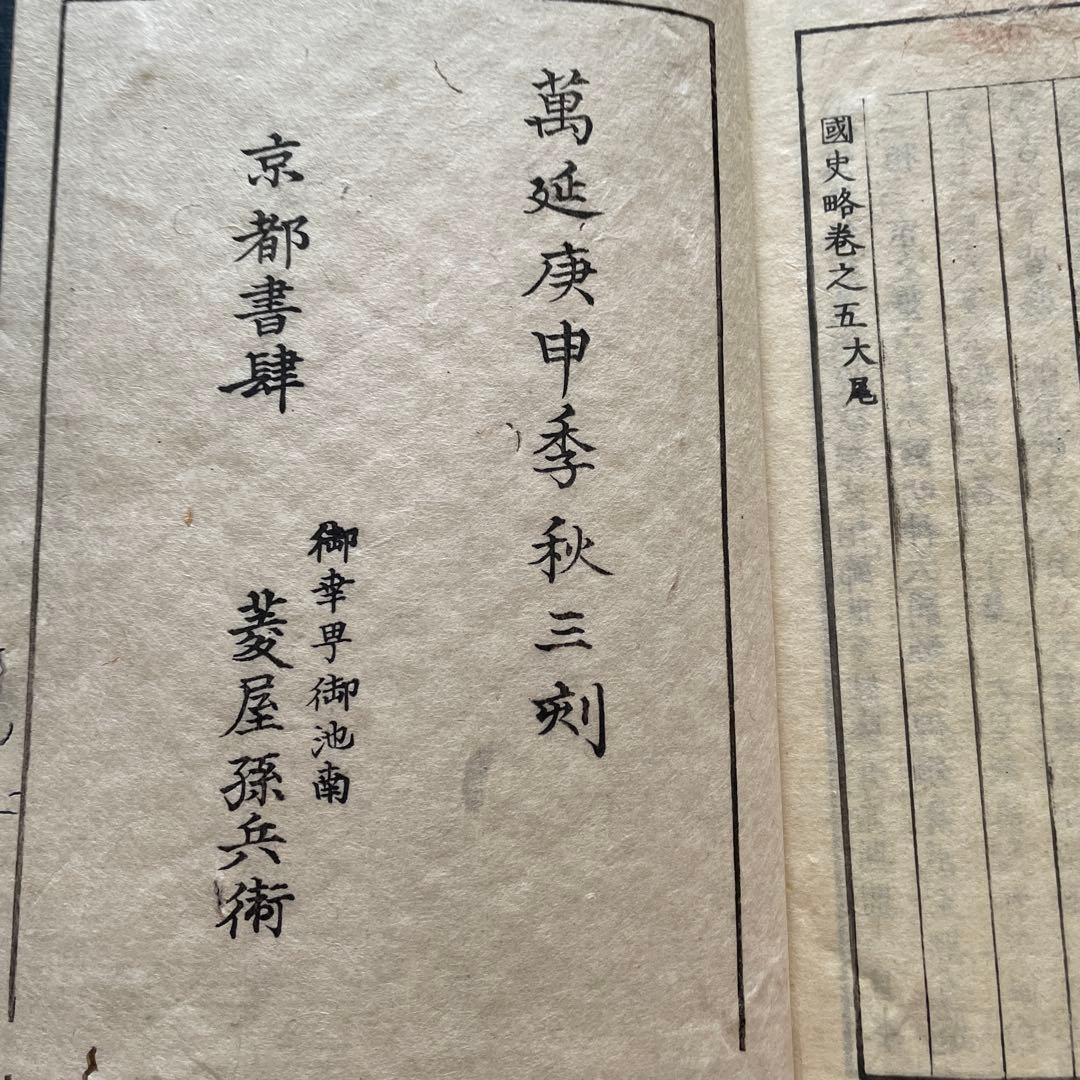 國史略卷之五大尾
萬延庚申季秋三刻
京都書肆
御幸甼御池南
菱屋孫兵衛